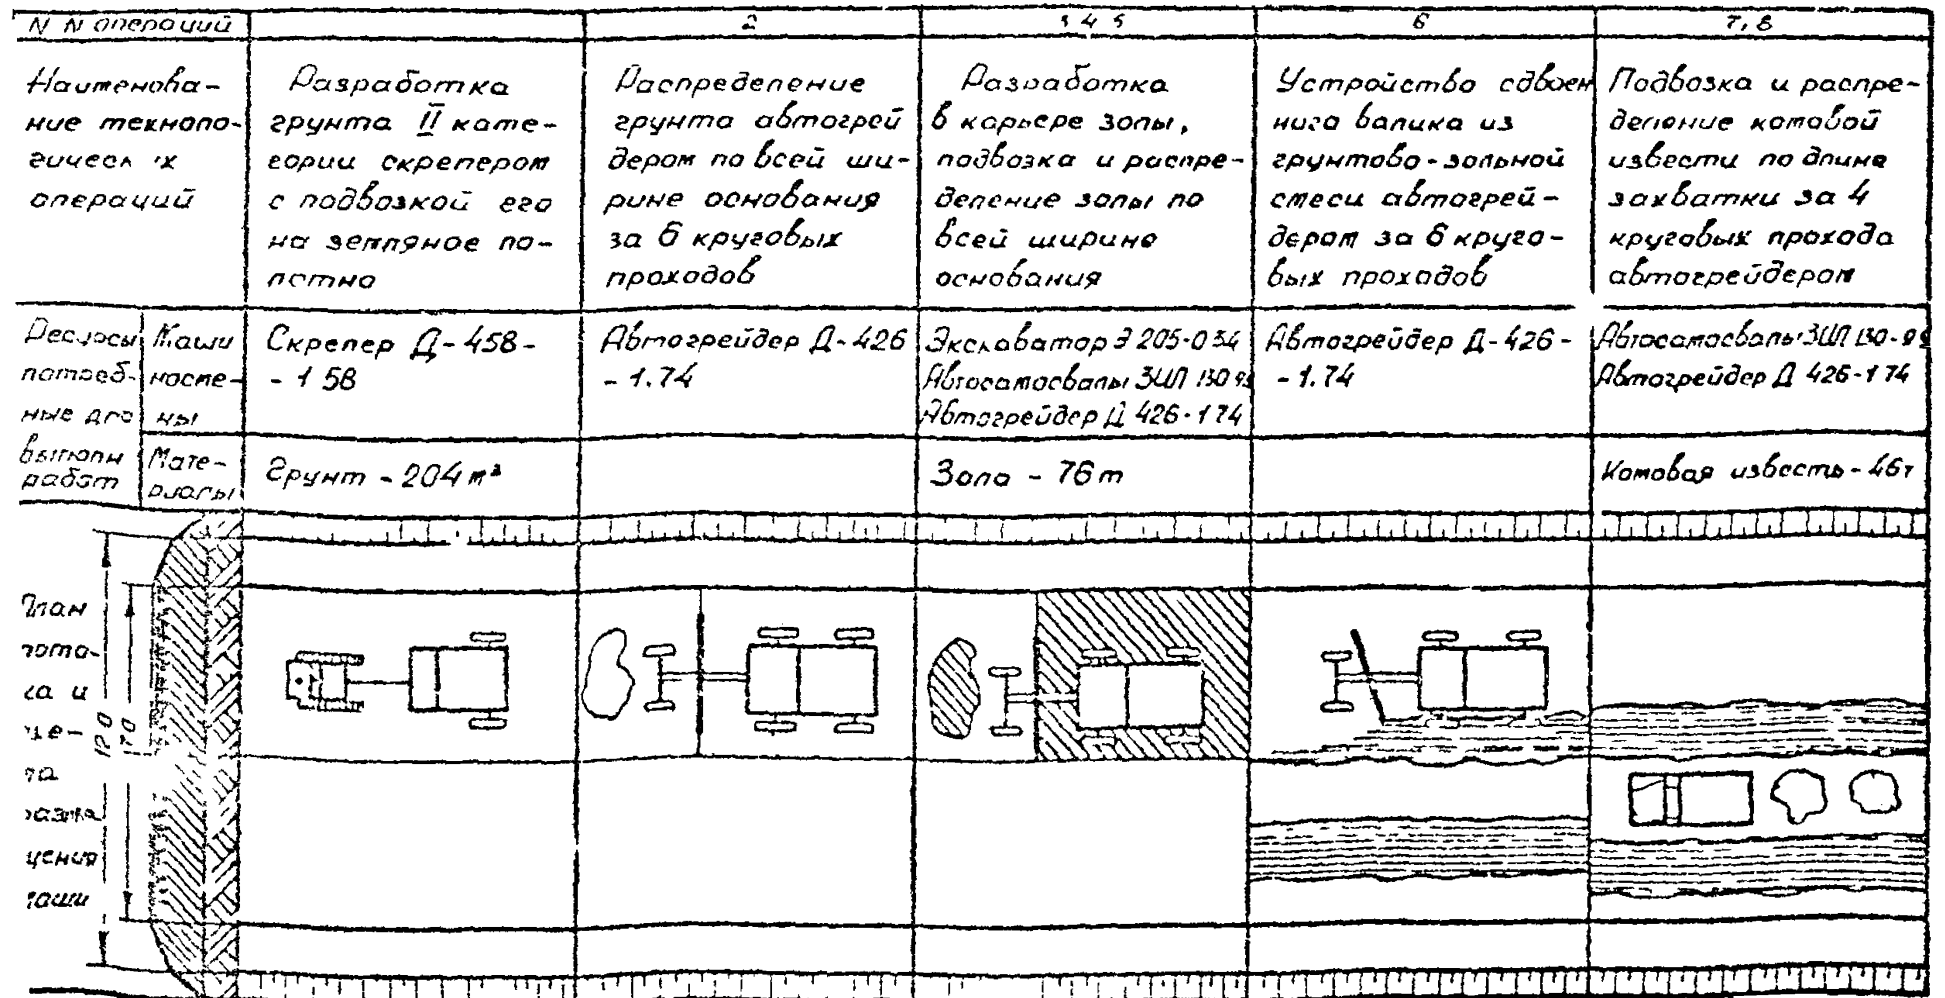 N N операций
2
3 4 5
6
7, 8
Наименова-
ние техноло-
гических
операций
Разработка
грунта II кате-
гории скрепером
с подвозкой его
на земляное по-
лотно
Распределение
грунта автогрей
дером по всей ши-
рине основания
за 6 круговых
проходов
Разработка
в карьере золы,
подвозка и распре-
деление золы по
всей ширине
основания
Устройство сдвоен
ного валика из
грунтово-зольной
смеси автогрей-
дером за 6 круго-
вых проходов
Подвозка и распре-
деление комовой
извести по длине
захватки за 4
круговых прохода
автогрейдером
Ресурсы
потреб-
ные для
выполн
работ
Маши
Скрепер Д-458-
- 1 58
Автогрейдер Д-426
- 1.74
Экскаватор Э 205-0 34
Автосамосвалы ЗИЛ 130
Автогрейдер Д 426-1 74
Автогрейдер Д-426-
- 1.74
Автосамосвалы ЗИЛ 130
Автогрейдер Д 426-1 74
Мате-
риалы
Грунт - 204 м³
Зола - 76 т
Комовая известь - 46т
План
пото-
ка и
ме-
та
разме
щения
маши
120